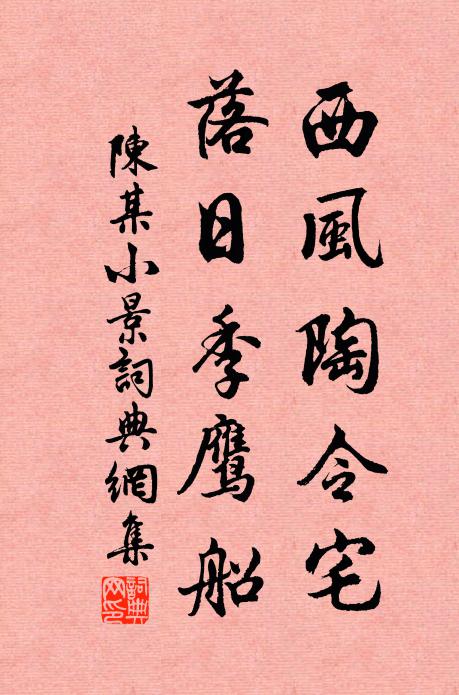 西風陶令宅
落日季鷹船
陳某小景詞典網集
詞典網印